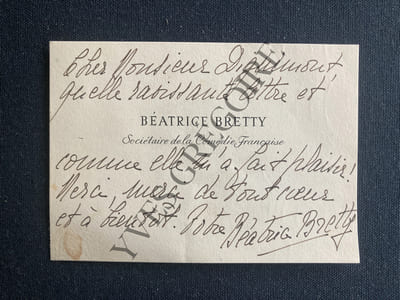 Cher Monsieur Dieudonné
quelle ravissante lettre et
BÉATRICE BRETTY
Sociétaire de la Comédie Française
comme elle m'a fait plaisir!
Merci, merci de tout cœur
et à bientôt. Votre Béatrice Bretty
YVES GREGOIRE